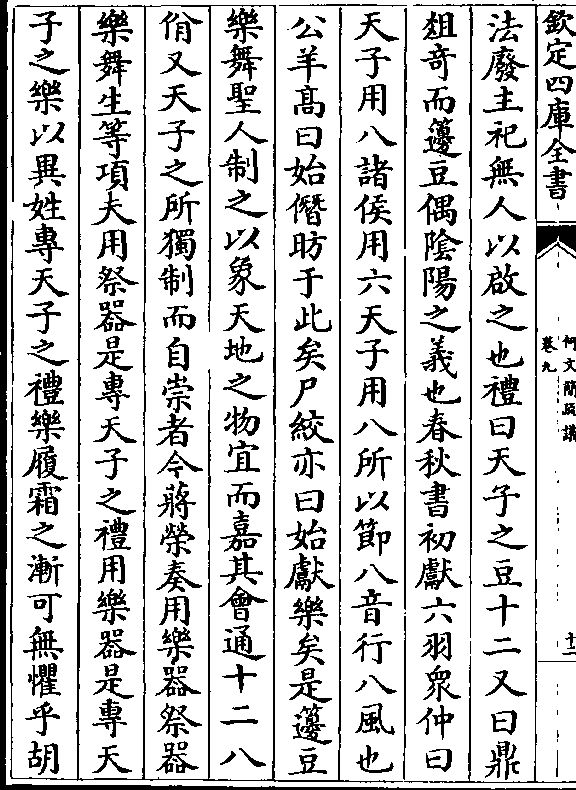 欽定四庫全書
何文簡疏議
卷九
十二
法廢主祀無人以啟之也禮曰天子之豆十二又曰鼎
俎奇而籩豆偶隂陽之義也春秋書初獻六羽衆仲曰
天子用八諸侯用六天子用八所以節八音行八風也
公羊髙曰始僭昉于此矣尸絞亦曰始獻樂矣是籩豆
樂舞聖人制之以象天地之物宜而嘉其會通十二八
佾又天子之所獨制而自崇者今蔣榮奏用樂器祭器
樂舞生等項夫用祭器是專天子之禮用樂器是專天
子之樂以異姓專天子之禮樂履霜之漸可無懼乎胡